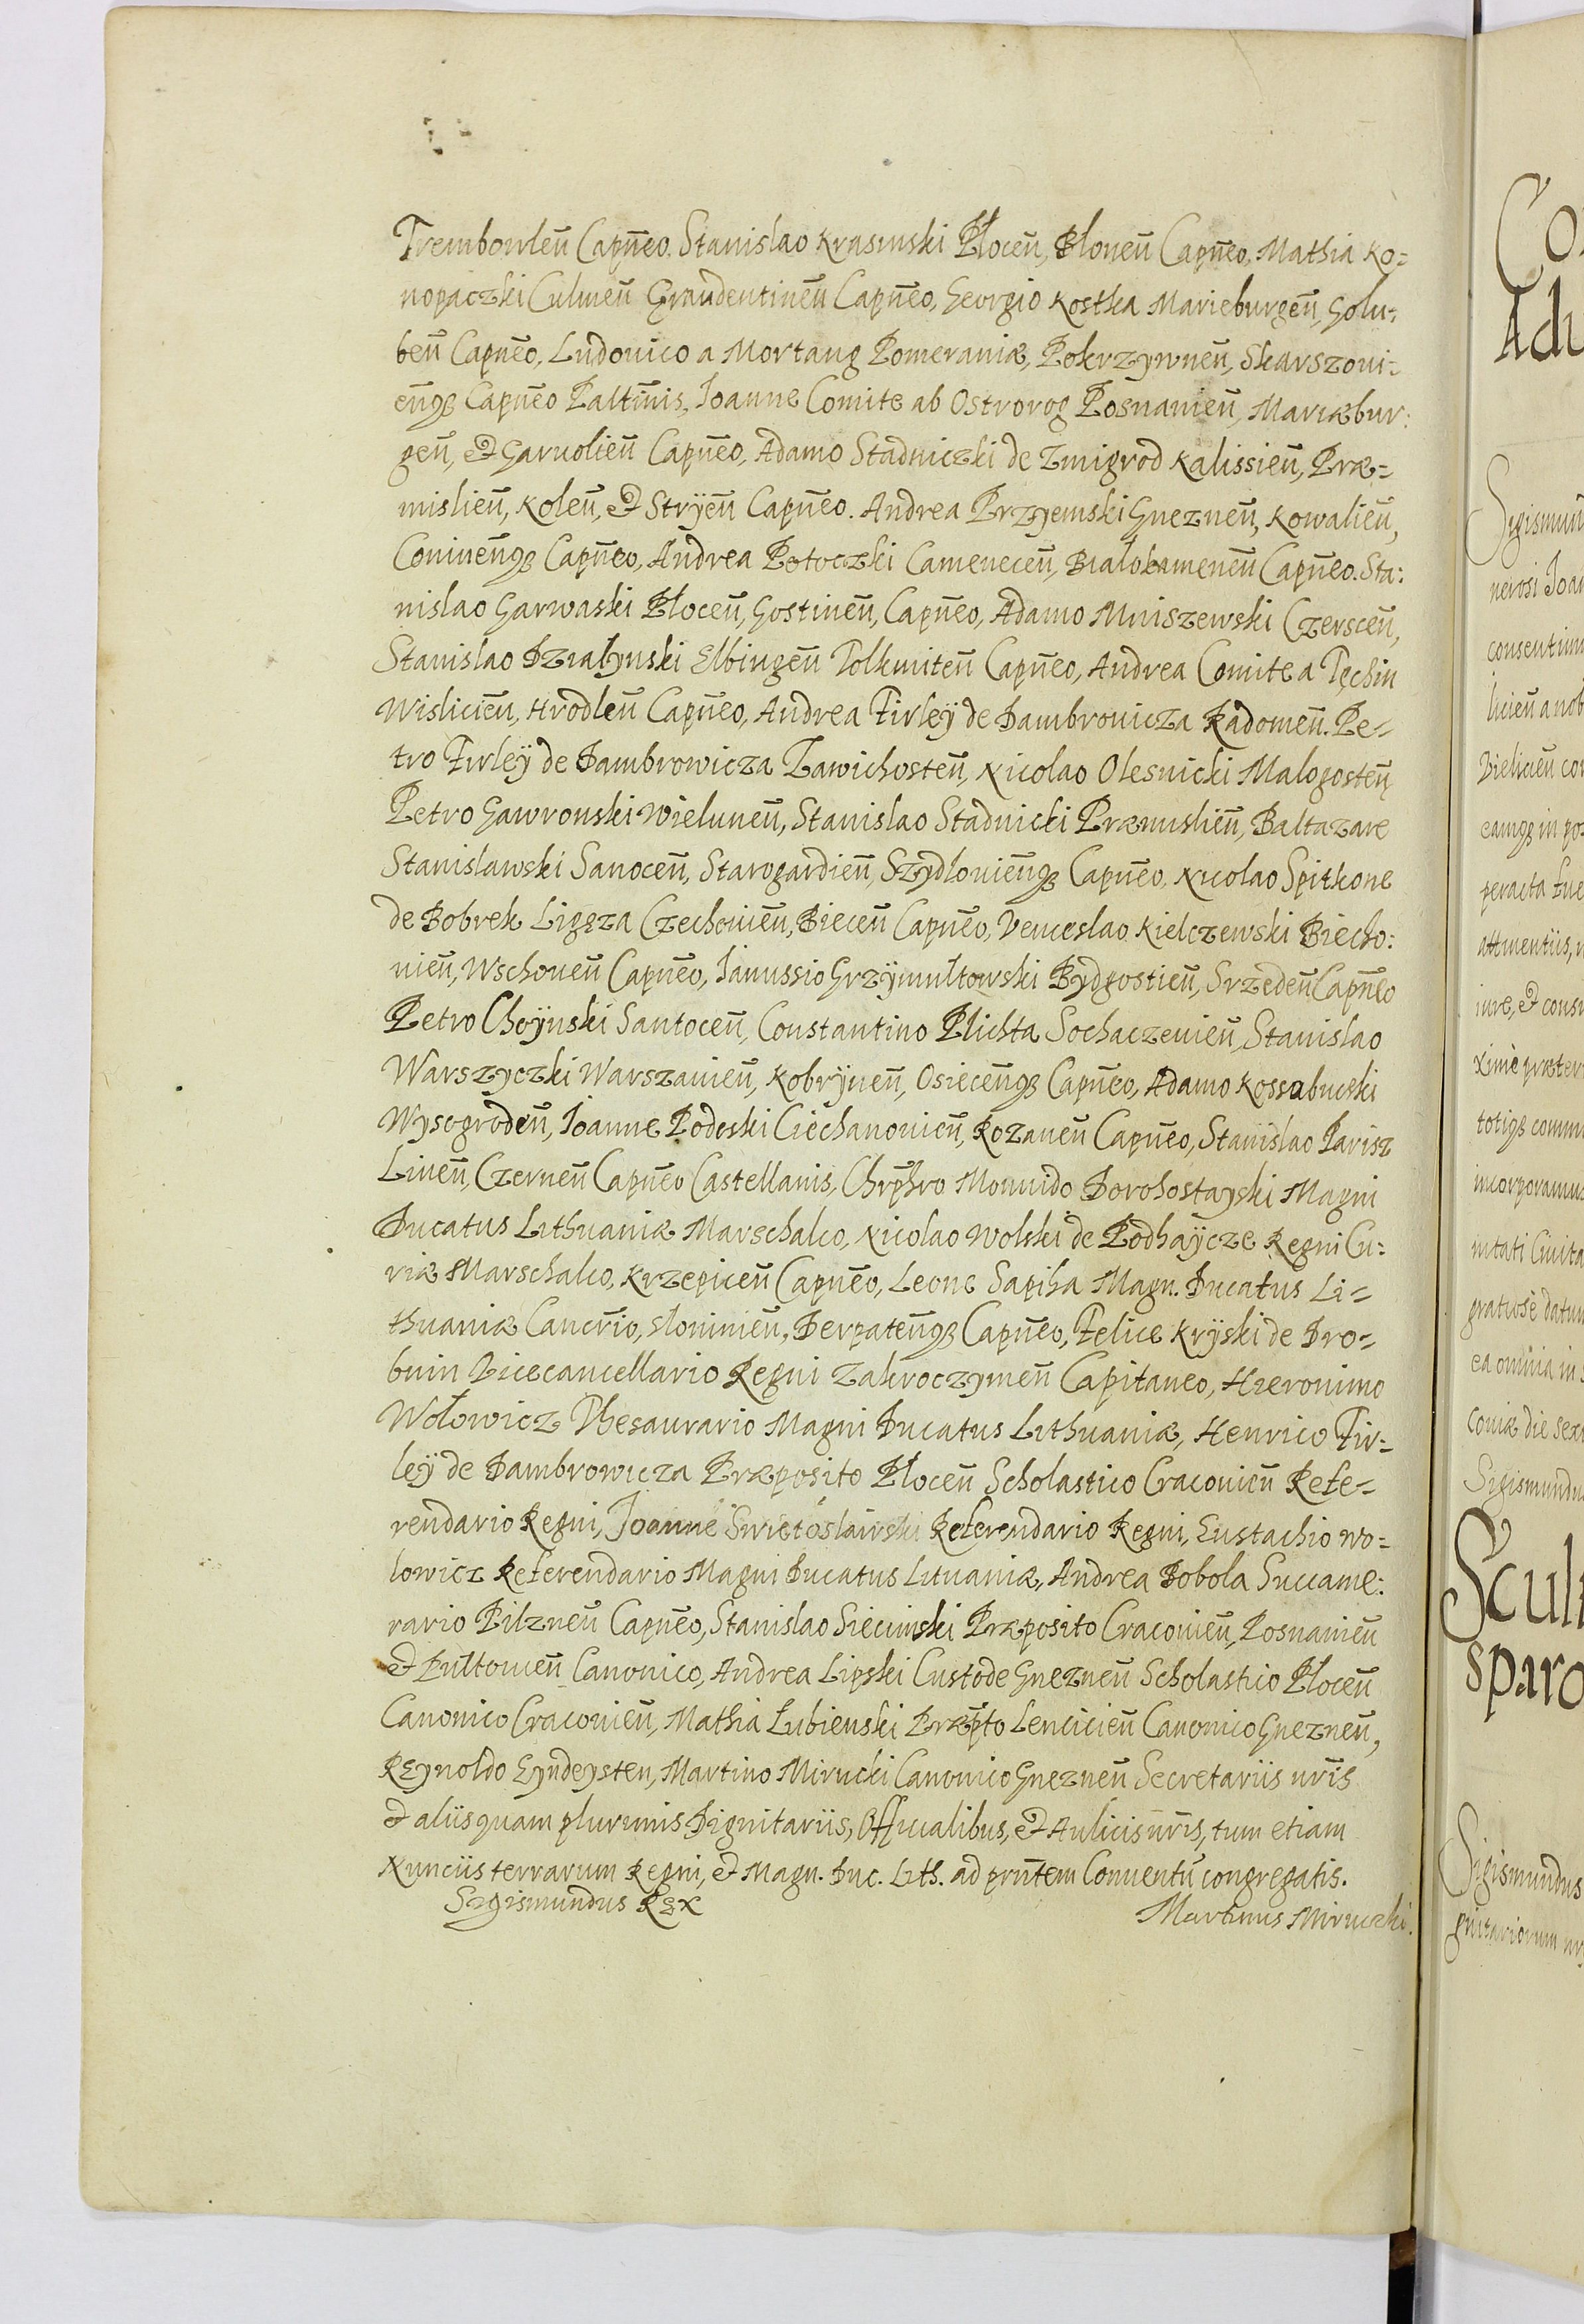 Trembowleñ Capñeo, Stanislao Krasinski Płoceñ, Bloneñ Capñeo, Mathia Ko=
nopaczki Culmeñ Graudentineñ Capñeo, Georgio Kostka Marieburgeñ, Golu=
beñ Capñeo, Ludouico a Mortang Pomeraniæ, Pokrzywneñ, Skarszoui=
eñqꝫ Capñeo Paltinis, Joanne Comite ab Ostrorog Posnanieñ, Mariæbur:
geñ, & Garuolieñ Capñeo, Adamo Stadniczki de Zmigrod Kalissieñ, Præ=
mislieñ, Koleñ, & Stryeñ Capñeo. Andrea Przyemski Gnezneñ, Kowalieñ,
Conineñqꝫ Capñeo, Andrea Potoczki Cameneceñ, Białokameneñ Capñeo. Sta:
nislao Garwaski Płoceñ, Gostineñ, Capñeo, Adamo Mniszewski Czersceñ,
Stanislao Dzialynski Elbingeñ Tolkmiteñ Capñeo, Andrea Comite a Tęchin
Wislicieñ, Hrodleñ Capñeo, Andrea Firleÿ de Dambrouicza Radomeñ. Pe=
tro Firleÿ de Dambrowicza Zawichosteñ, Nicolao Olesnicki Malogosteñ
Petro Gawronski Wieluneñ, Stanislao Stadnicki Præmislieñ, Baltazare
Stanislawski Sanoceñ, Starogardieñ, Szydlouieñqꝫ Capñeo, Nicolao Spitkone
de Bobrek Ligęza Czechouieñ, Bieceñ Capñeo, Venceslao Kielczewski Biecho:
uieñ, Wschoueñ Capñeo, Janussio Grzÿmultowski Bydgostieñ, Srzedeñ Capñeo
Petro Choÿnski Santoceñ, Constantino Plichta Sochaczeuieñ, Stanislao
Warszyczki Warszauieñ, Kobrÿneñ, Osieceñqꝫ Capñeo, Adamo Kossabucski
Wysogrodeñ, Joanne Podoski Ciechanouieñ, Rozaneñ Capñeo, Stanislao Parisz
Liueñ, Czerneñ Capñeo Castellanis, Chrp̃hro Monuido Dorohostayski Magni
Ducatus Lithuaniæ Marschalco, Nicolao Wolski de Podhaÿcze Regni Cu:
riæ Marschalco, Krzepiceñ Capñeo, Leone Sapiha Magn. Ducatus Li=
thuaniæ Cancr̃io, Słonimieñ, Derpateñqꝫ Capñeo, Felice Krÿski de Dro=
bnin Vicecancellario Regni Zakroczymeñ Capitaneo, Hieronimo
Wołowicz Thesaurario Magni Ducatus Lithuaniæ, Henrico Fir=
leÿ de Dambrowicza Præposito Płoceñ Scholastico Cracouieñ Refe=
rendario Regni, Joanne Swietoslawski Referendario Regni, Eustachio Wo=
lowicz Referendario Magni Ducatus Lituaniæ, Andrea Bobola Succame:
rario Pilzneñ Capñeo, Stanislao Siecinski Præposito Cracouieñ, Posnanieñ
& Pultouieñ Canonico, Andrea Lipski Custode Gnezneñ Scholastico Płoceñ
Canonico Cracouieñ, Mathia Łubienski Præp̃to Lencicieñ Canonico Gnezneñ,
Reynoldo Eyndeysten, Martino Mirucki Canonico Gnezneñ Secretariis nr̃is
& aliis quam plurimis Dignitariis, Officialibus, & Aulicis nr̃is, tum etiam
Nunciis terrarum Regni, & Magn. Duc. Lith. ad prñtem Conuentũ congregatis.
Sigismundus Rex
Martinus Miruczki.
Co
Adu
Sigismun
nerosi Joan
consentim
licieñ a nob
Bielicieñ co
eamqꝫ in po
peracta fue
attinentiis,
iure, & cons
xime præter
totiqꝫ comm
incorporamu
nitati Ciuita
gratiose datum
ea omnia in
couiæ die sex
Sigismundu
Scul
sparo
Sigismundus
gnitariorum nr